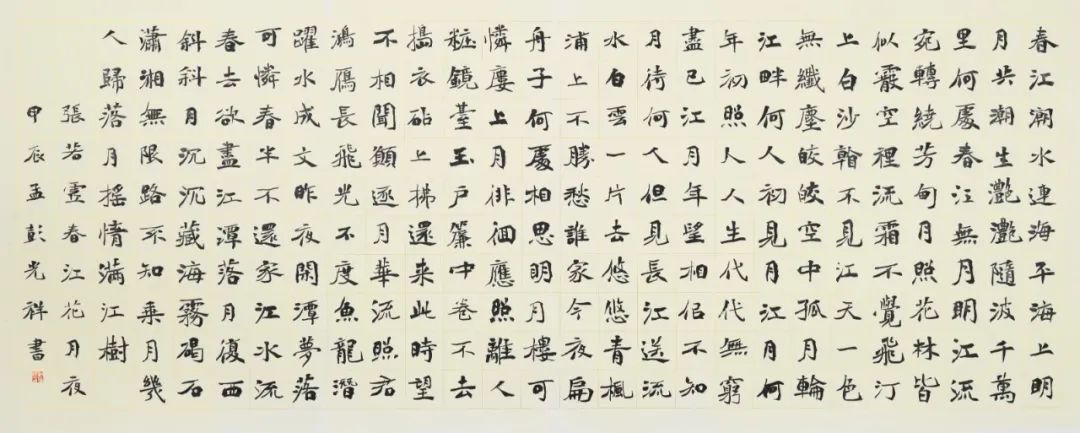 春江潮水連海平海上明
月共潮生灩灩隨波千萬
里何處春江無月明江流
宛轉繞芳甸月照花林皆
似霰空裡流霜不覺飛汀
上白沙看不見江天一色
無纖塵皎皎空中孤月輪
江畔何人初見月江月何
年初照人人生代代無窮
盡已江月年望相佀不知
月待何人但見長江送流
水白雲一片去悠悠青楓
浦上不勝愁誰家今夜扁
舟子何處相思明月樓可
憐廔上月徘徊應照離人
粧鏡臺玉戶簾中卷不去
搗衣砧上拂還来此時望
不相聞願逐月華流照君
鴻鴈長飛光不度魚龍潛
躍水成文昨夜閑潭夢落
可憐春半不還家江水流
春去欲盡江潭落月復西
斜斜月沉沉藏海霧碣石
瀟湘無限路不知乘月幾
人歸落月搖情滿江樹
張若虛春江花月夜
甲辰孟彭光祥書